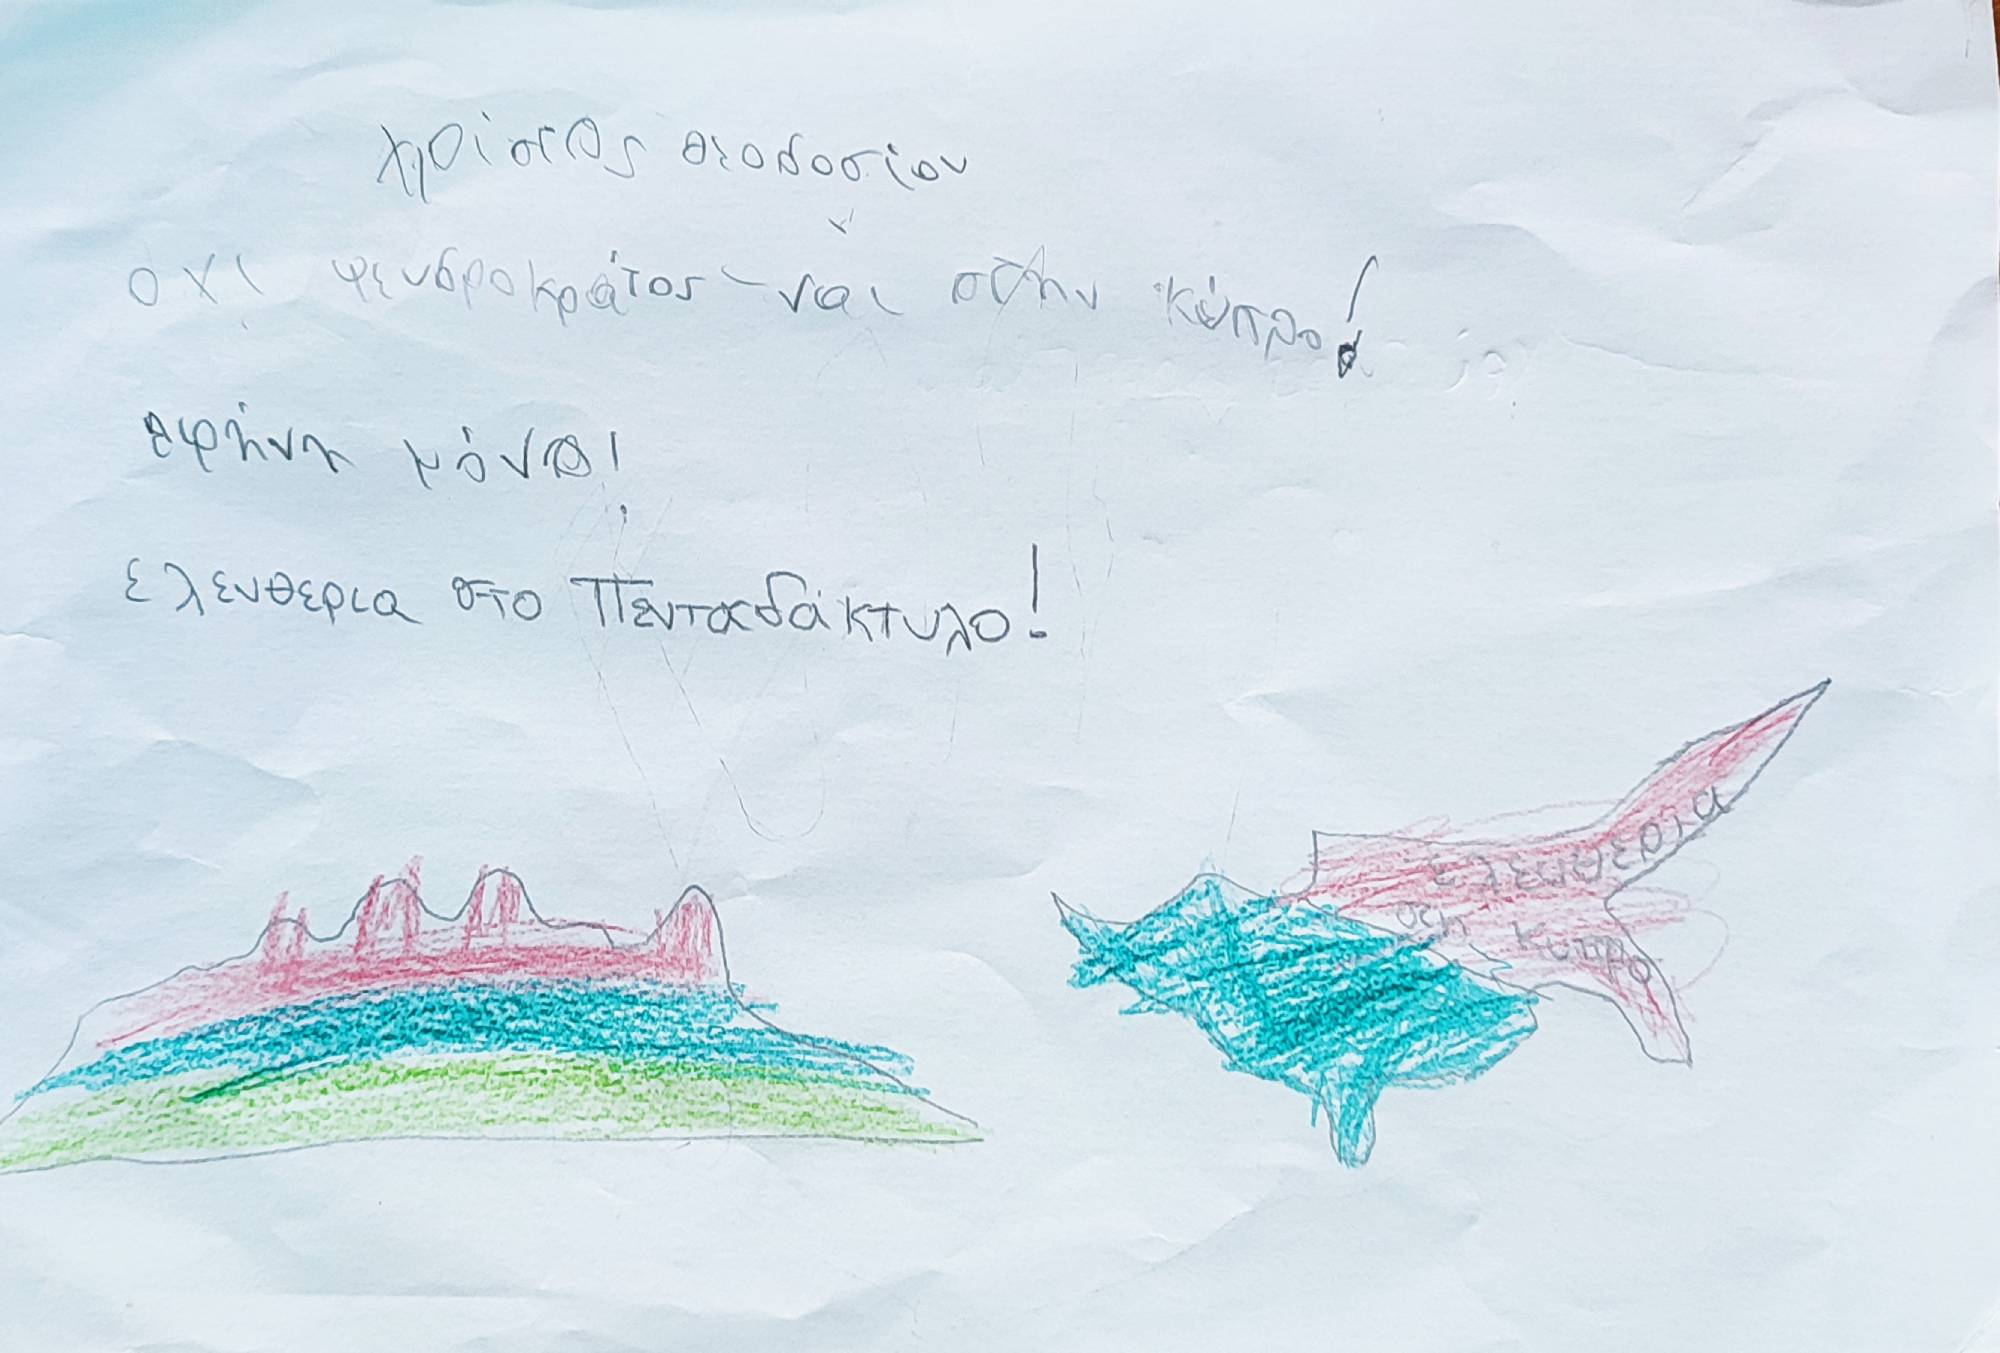 χρίστος θεοδοσίου
οχι ψευδροκράτος - ναι στην κύπρο!
ειρήνη μόνο!
Ελευθερια στο Πενταδάκτυλο!
Ελευθερια
στη κυπρο